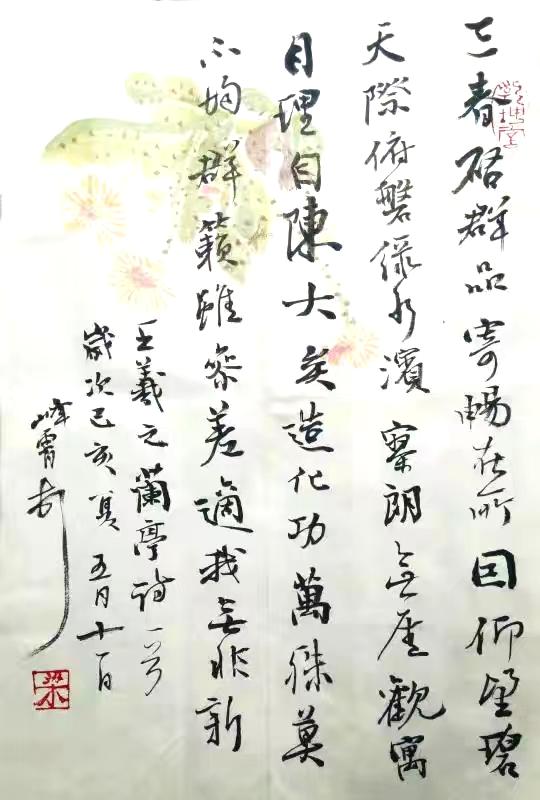 三春啓群品寄暢在所因仰望碧
天際俯磐綠水濱寥朗無崖觀寓
目理自陳大矣造化功萬殊莫
不均群籟雖參差適我無非新
王羲之蘭亭詩一首
歲次己亥夏五月十一日
峰霄書